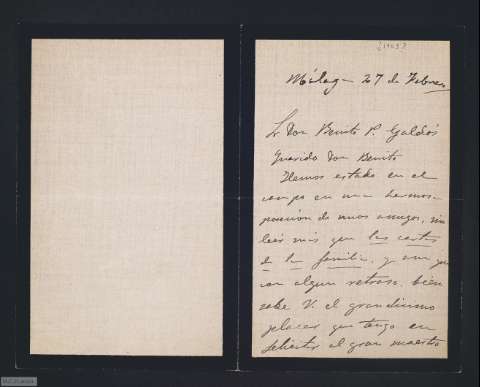 Málaga 27 de Febrero
Sr Don Benito P. Galdós
Querido Don Benito
Hemos estado en el
campo en una hermosa
posesión de unos amigos, sin
leer más que las cartas
de la familia, y aun que
con algun retraso, bien
sabe V. el grandisimo
placer que tengo en
felicitar al gran maestro